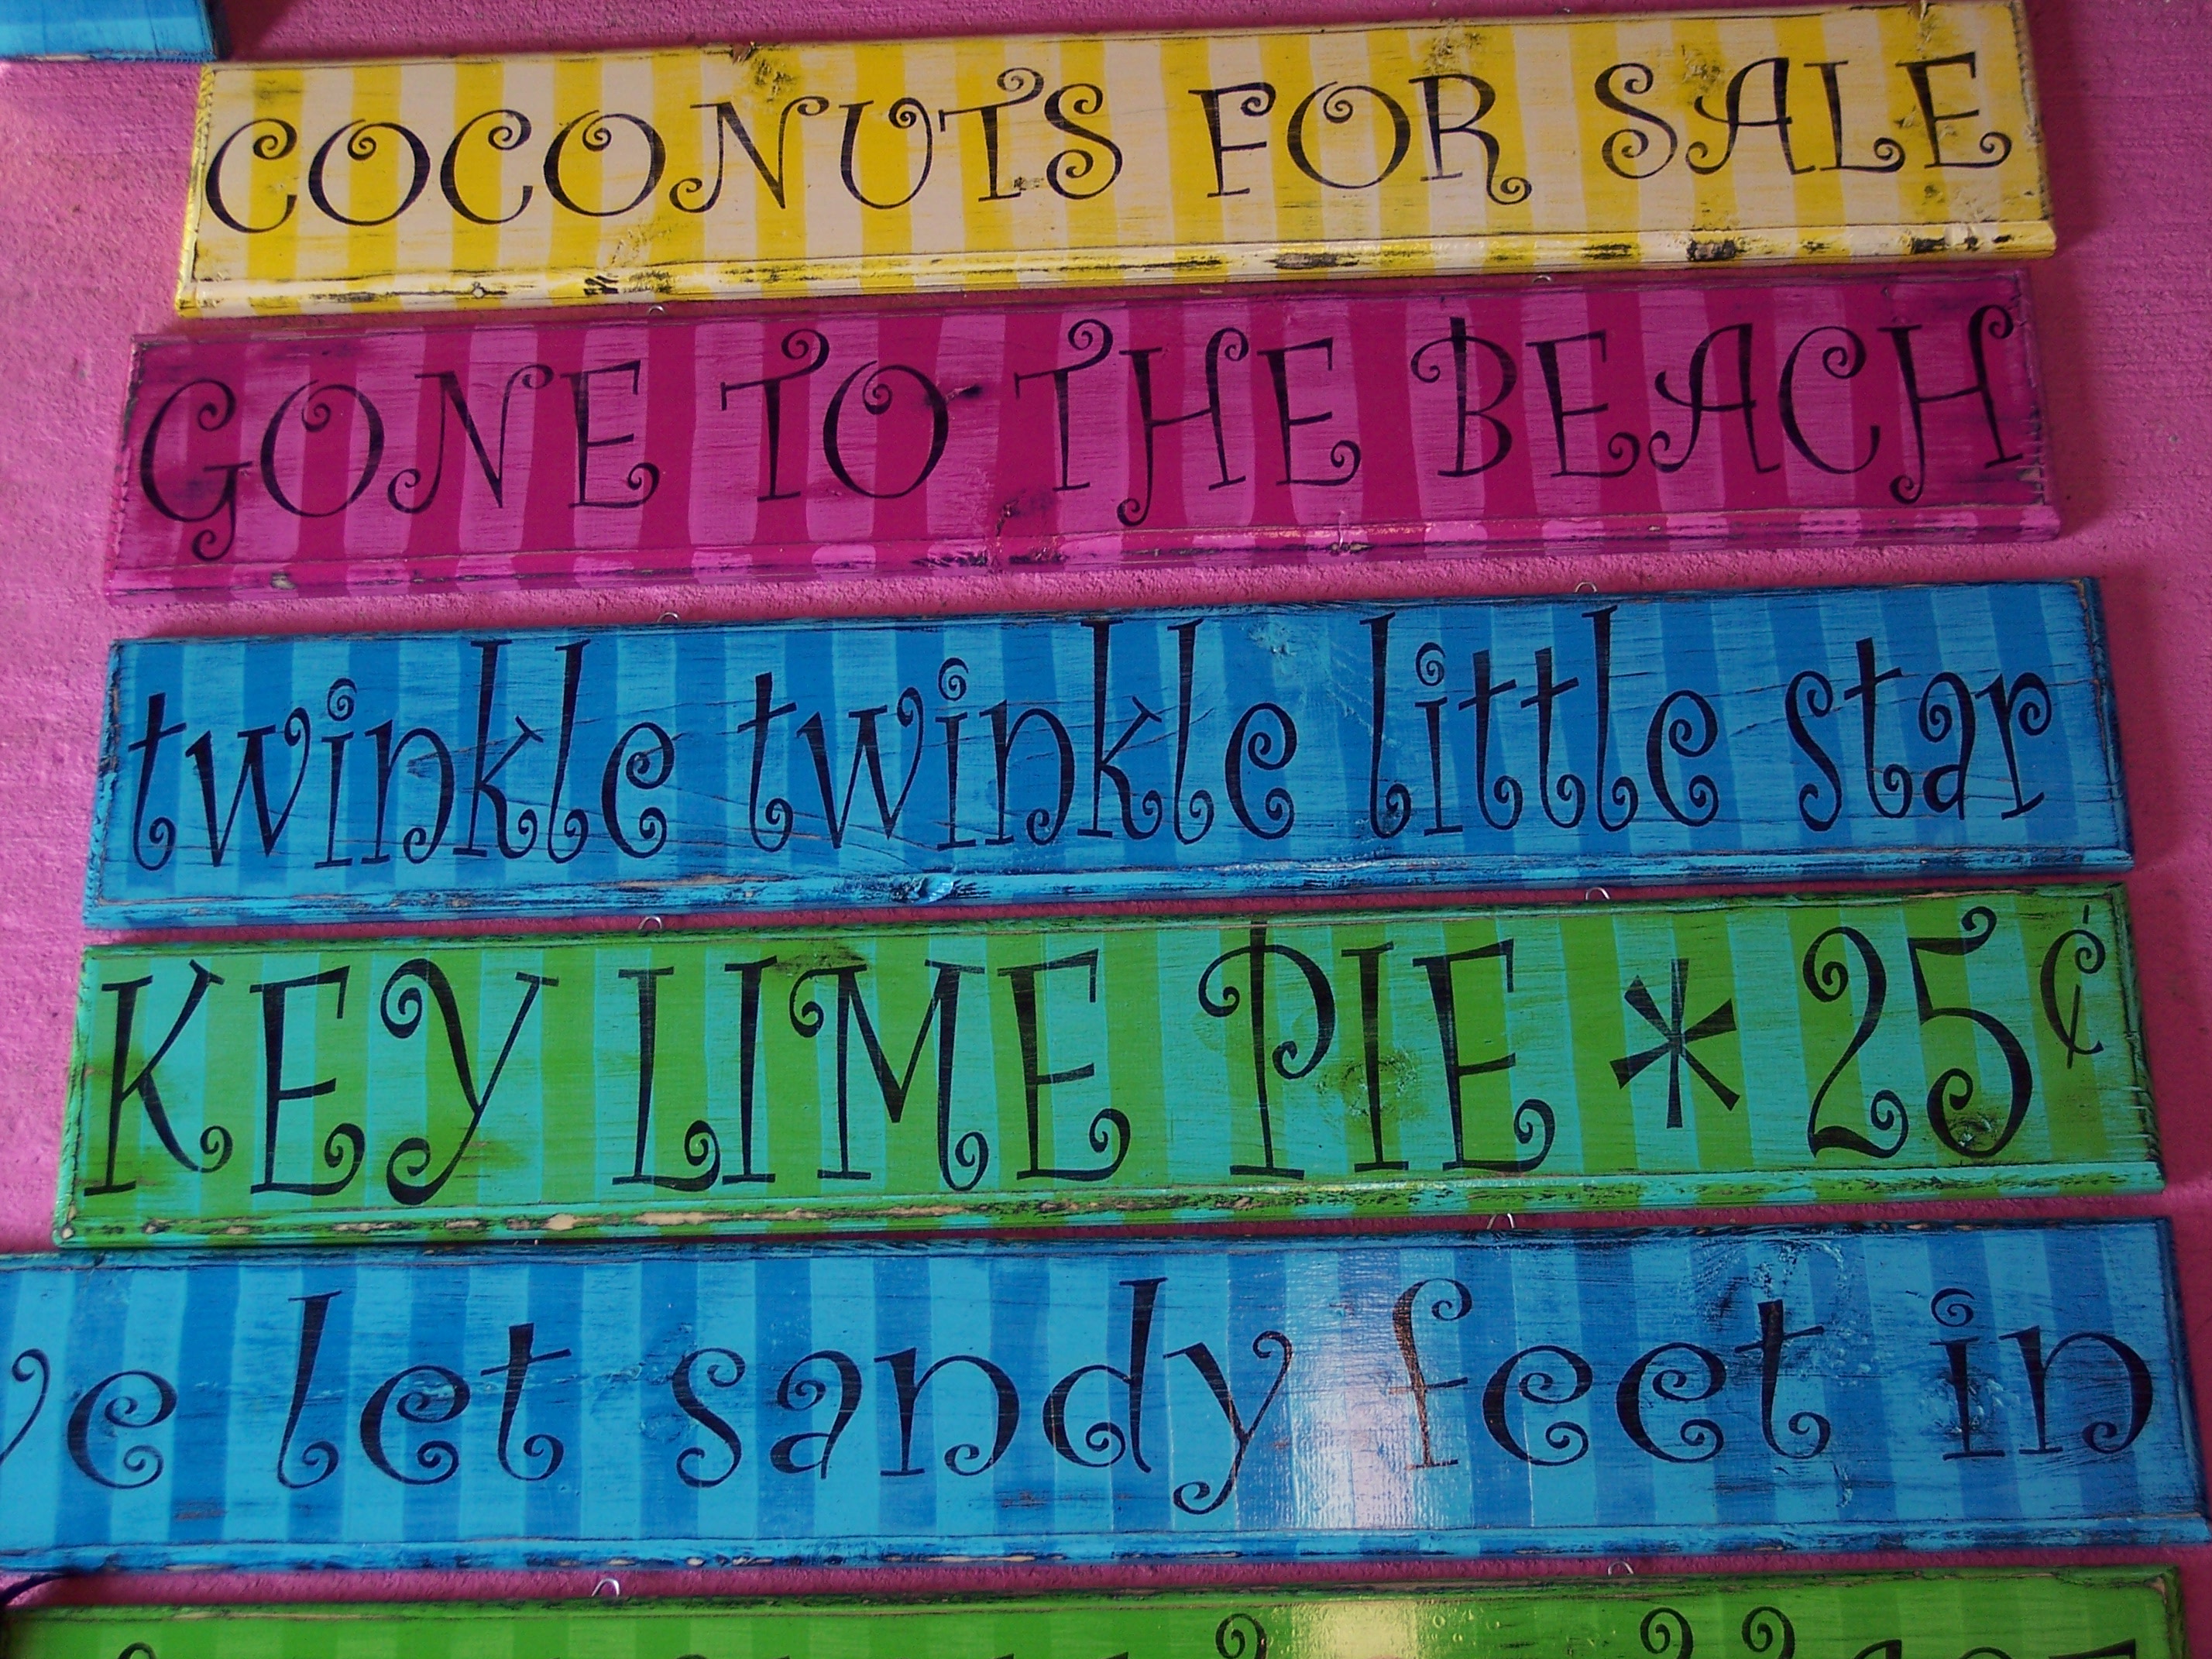 COCONUTS FOR SALE
GONE TO THE BEACH
twinkle twinkle little star
KEY LIME PIE * 25¢
let sandy feet in